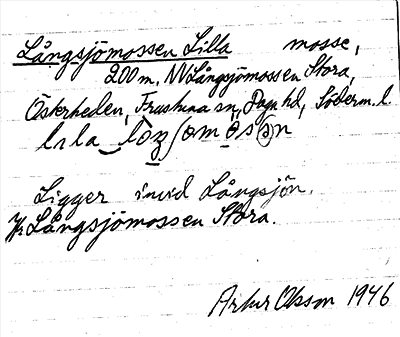 Långsjömossen Lilla mosse,
200 m. NV Långsjömossen Stora,
Österheden, Frustuna sn, Daga hd, Söderm. l.
Ligger invid Långsjön.
Jfr Långsjömossen Stora.
Artur Olsson 1946